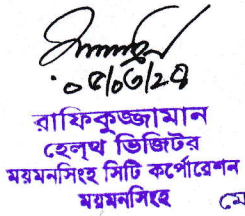 ০৫/০৩/২৪
রাফিকুজ্জামান
হেল্থ ভিজিটর
ময়মনসিংহ সিটি কর্পোরেশন
ময়মনসিংহ